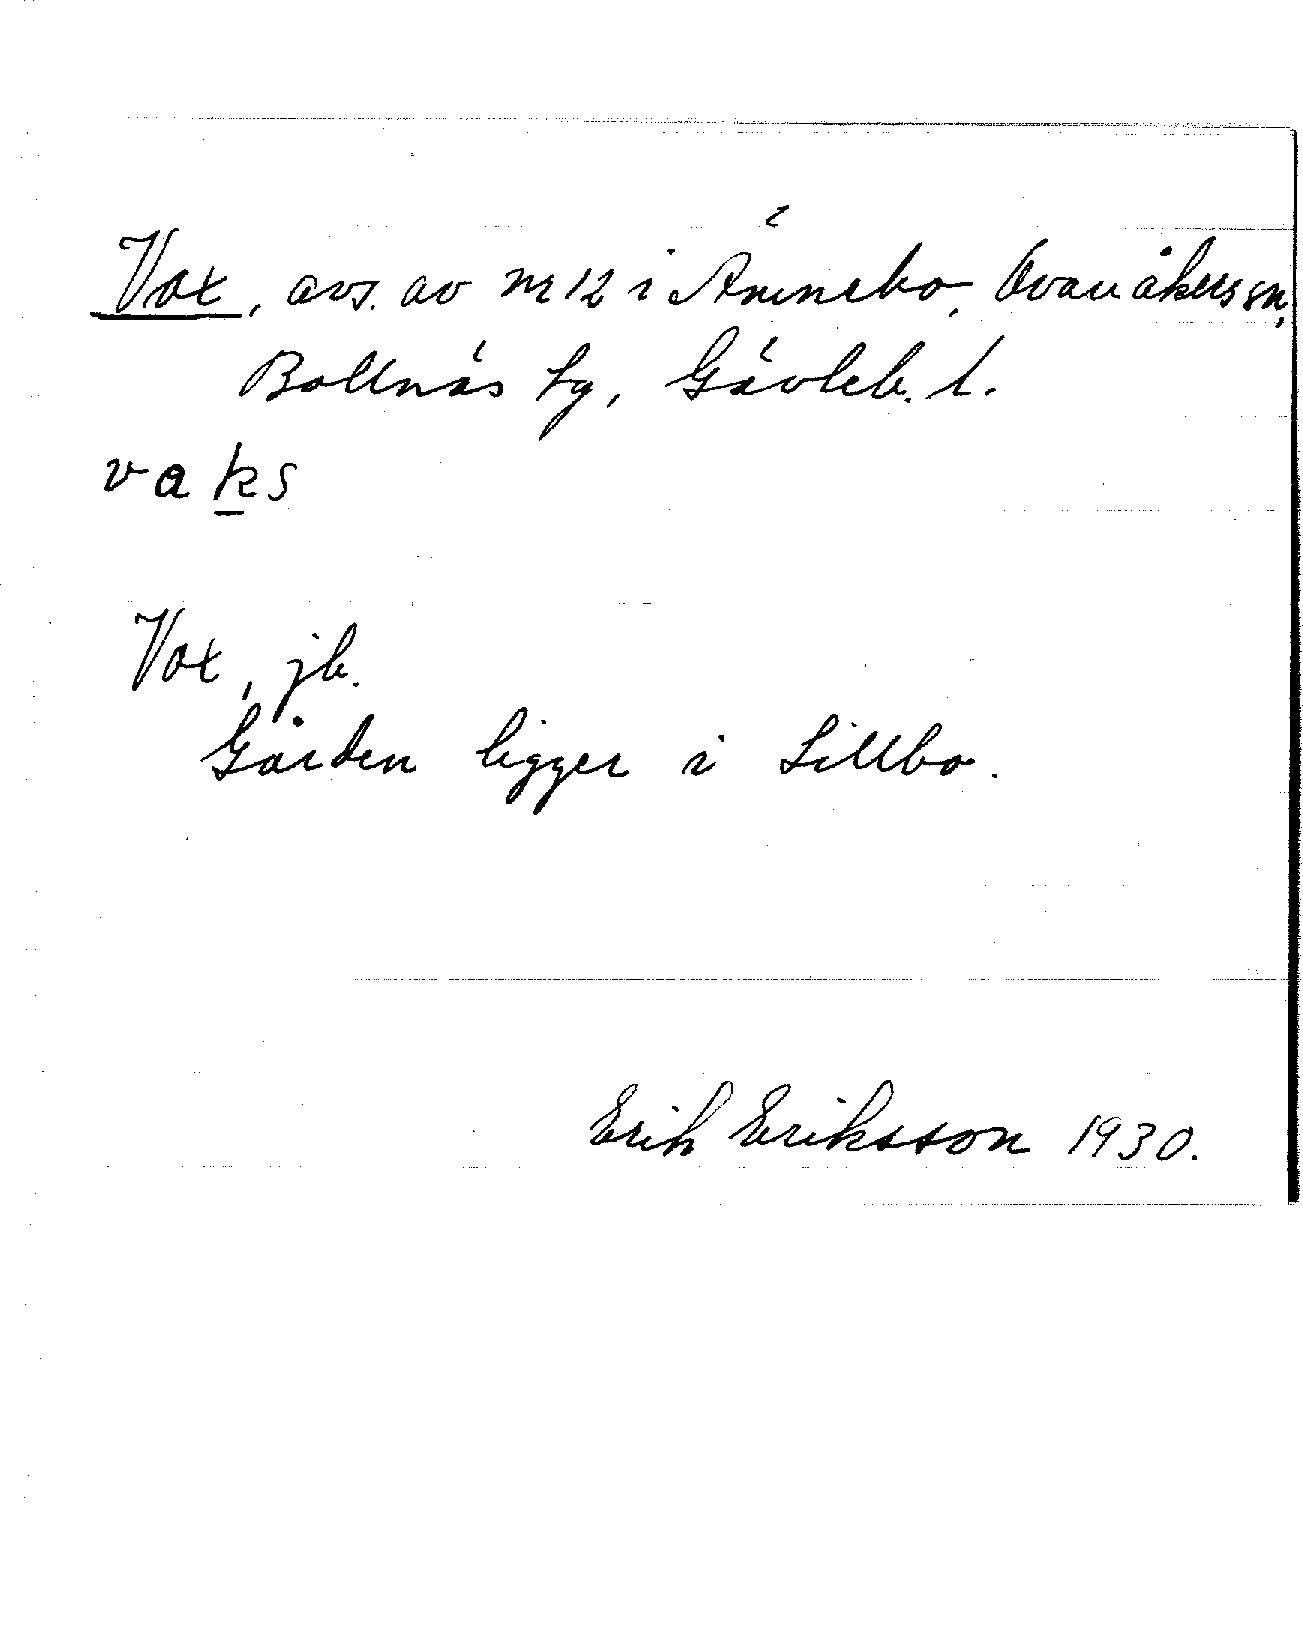 Vax, avs. av nr 12 i Ämnebo, Ovanåkers sn,
Bollnäs tg, Gävleb. l.
vaks
Vax, jb.
Gården ligger i Lillbo.
Erik Eriksson 1930.